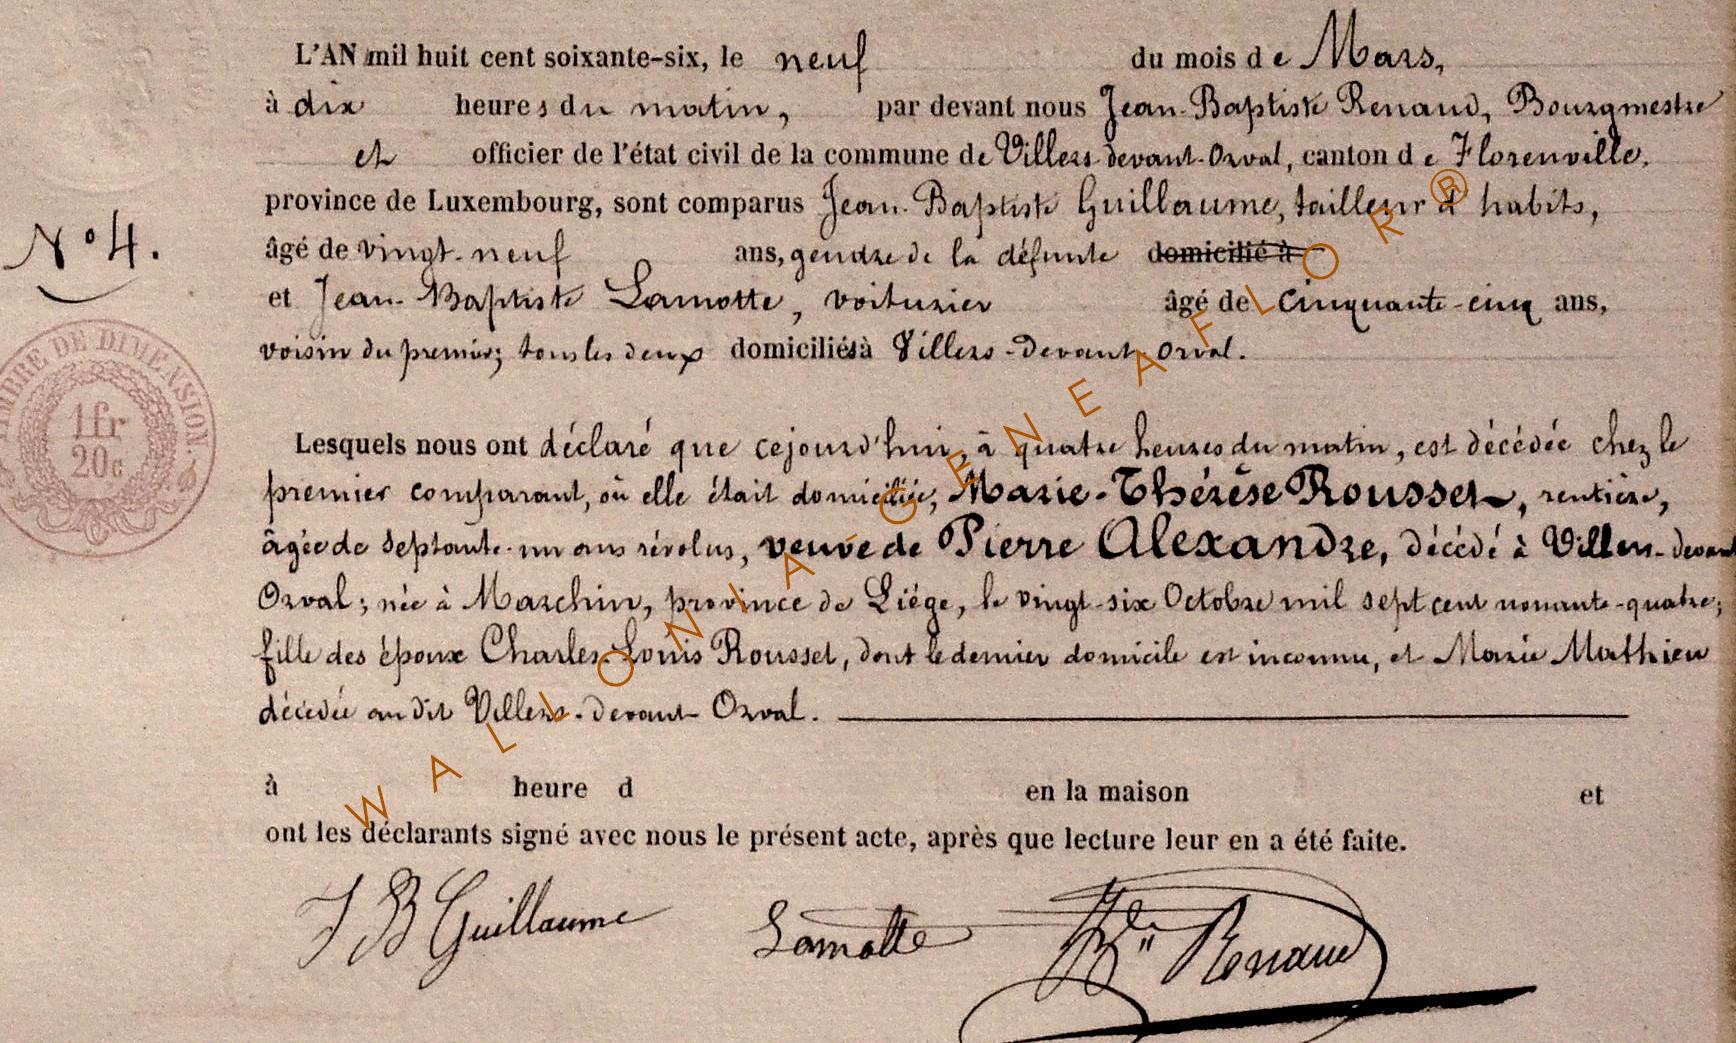 L'AN mil huit cent soixante-six, le neuf du mois de Mars,
à dix heures du matin, par devant nous Jean-Baptiste Renaud, Bourgmestre
et officier de l'état civil de la commune de Villers-devant-Orval, canton de Florenville,
province de Luxembourg, sont comparus Jean-Baptiste Guillaume, tailleur d'habits,
N° 4.
âgé de vingt-neuf ans, gendre de la défunte domicilié à
et Jean-Baptiste Lamotte, voiturier âgé de cinquante-cinq ans,
voisin du premier; tous les deux domiciliés à Villers-devant-Orval.
TIMBRE DE DIMENSION.
1fr
20c
Lesquels nous ont déclaré que cejourd'hui, à quatre heures du matin, est décédée chez le
premier comparant, où elle était domiciliée, Marie-Thérèse Rousset, rentière,
âgée de septante-un ans révolus, veuve de Pierre Alexandre, décédé à Villers-devant
Orval; née à Marchin, province de Liége, le vingt-six Octobre mil sept cent nonante-quatre;
fille des époux Charles-Louis Rousset, dont le dernier domicile est inconnu, et Marie Mathieu
décédée au dit Villers-devant-Orval.
à heure d en la maison et
ont les déclarants signé avec nous le présent acte, après que lecture leur en a été faite.
J B Guillaume Lamotte Renaud
WALLONIA GENEAFLOR ®